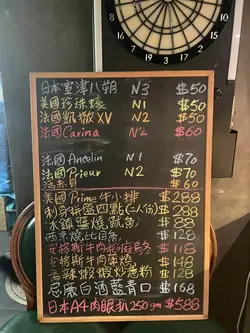 日本室津八朔 N3 $50
美國珍珠蠔 N1 $50
法國凱撒XV N2 $50
法國Carina N2 $60
法國Ancelin N1 $70
法國Prieur N2 $70
活赤貝 $60
美國Prime牛小排 $288
刺身拼盤四點(二人份) $288
水鏡 魷魚, $88
西京燒比目魚, $128
安格斯牛肉 $118
安格斯牛肉 $148
香辣蝦 蝦炒 粉 $128
忌廉白酒藍青口 $168
日本A4肉眼扒250gm $588